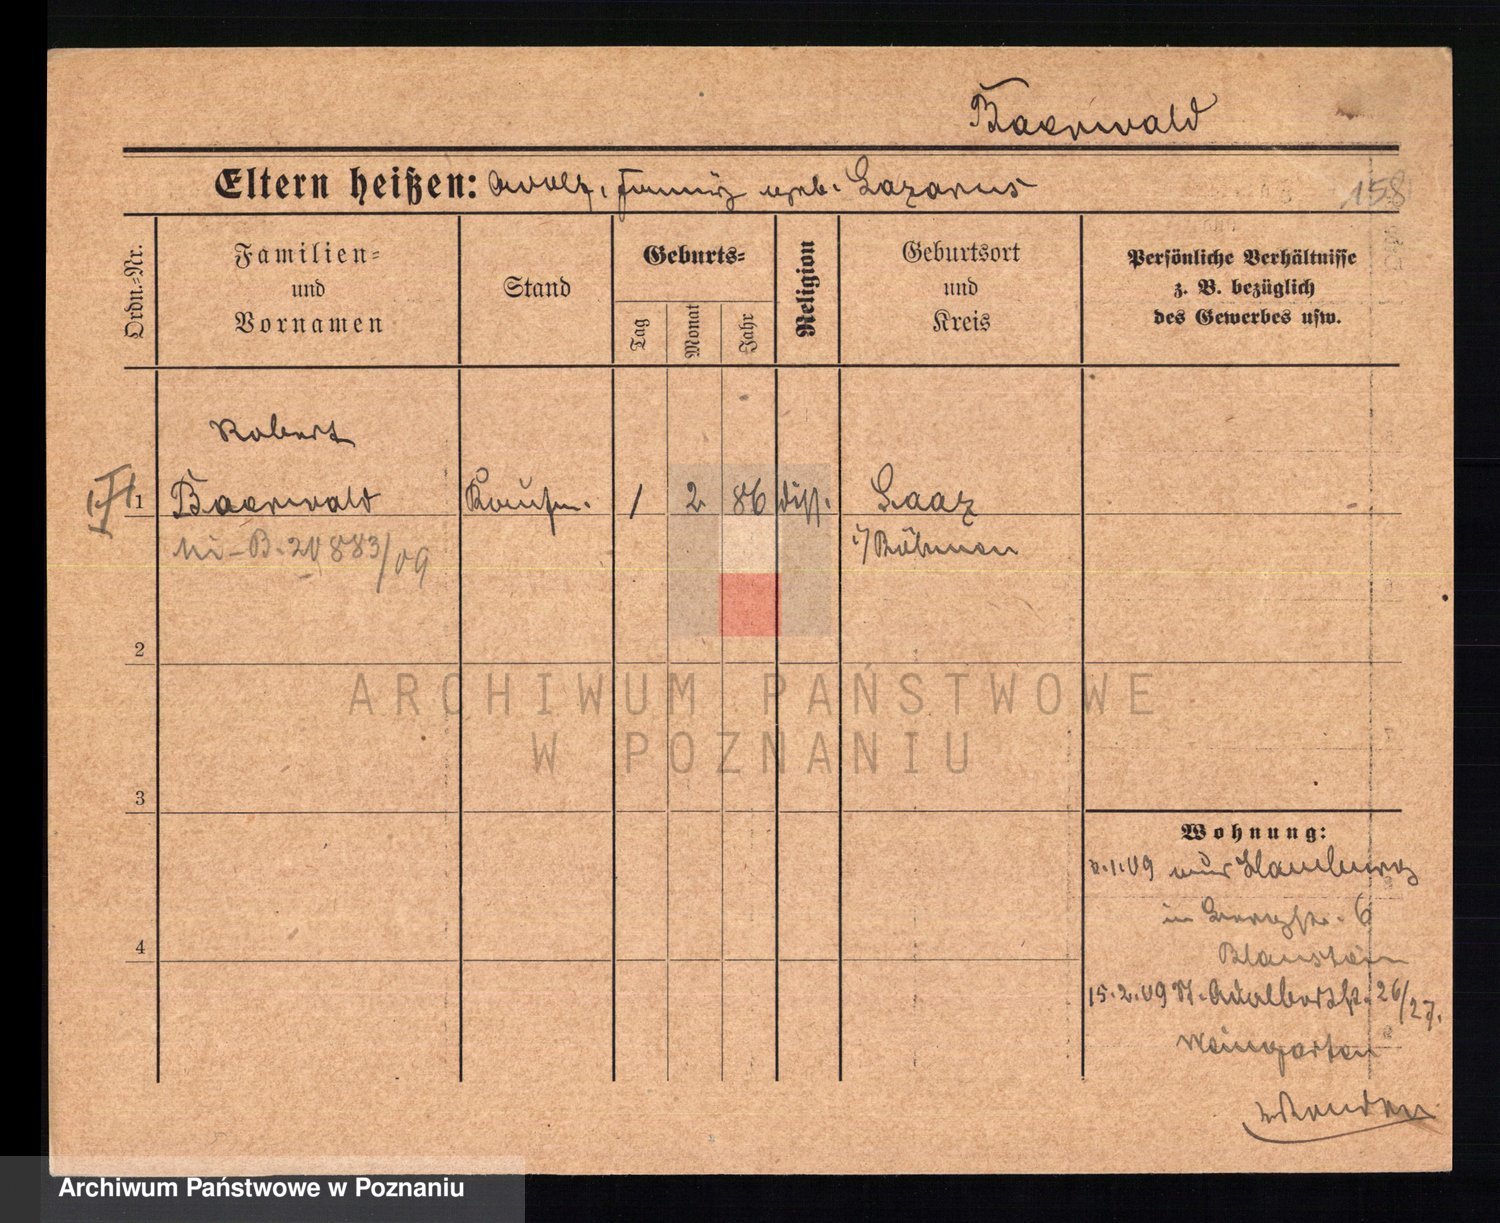 Baerwald
Eltern heißen: Adolf, geb. Lazarus
158
Ordn.-Nr.
Familien-
und
Vornamen
Stand
Geburts-
Tag
Monat
Jahr
Religion
Geburtsort
und
Kreis
Persönliche Verhältnisse
z. B. bezüglich
des Gewerbes usw.
Robert
1 Baerwald Kaufm. 1 2 86 diss. Saaz
i/ Böhmen
B. 20883/09
2
ARCHIWUM PAŃSTWOWE
W POZNANIU
3
Wohnung:
1.09 aus Hamburg
6
4
15.2.09 St. Adalbertstr. 26/27.
Weingarten
Archiwum Państwowe w Poznaniu